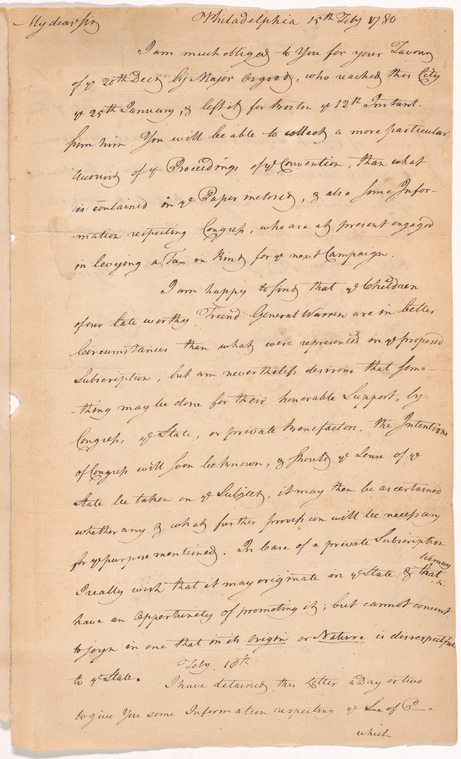 My dear Sir Philadelphia 15th Feby 1780
I am much obliged to You for your Favour
of ye 20th Decr by Major Osgood, who reached this City
ye 25th January, & left it for Boston ye 12th Instant.
from him You will be able to collect a more particular
Account of ye Proceedings of ye Convention, than what
is contained in ye Paper inclosed, & also some Infor-
-mation respecting Congress, who are at present engaged
in levying a Tax in Kind for ye next Campaign.
I am happy to find that ye Children
of our late worthy Friend General Warren are in better
Circumstances than what were represented in ye proposed
Subscription, but am nevertheless desirous that some-
-thing may be done for their honorable Support, by
Congress, ye State, or private Benefactors. the Intentions
of Congress will soon be known, & should ye Sense of ye
State be taken on ye Subject, it may then be ascertained
whether any & what further provision will be necessary
for ye purpose mentioned. In Case of a private Subscription
I really wish that it may originate in ye State & that we may
have an Opportunity of promoting it; but cannot consent
to joyn in one that in its Origin or Nature is disrespectful
to ye State.
Feby. 18th
I have detained this Letter a Day or two
to give You some Information respecting ye S— of P—
which